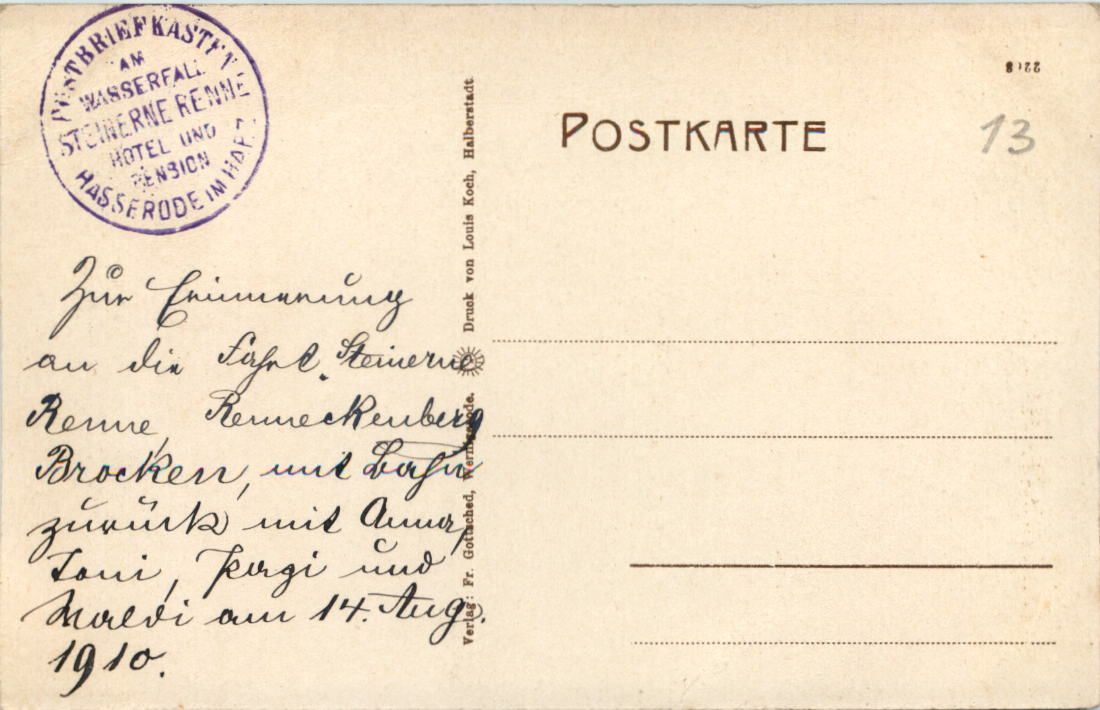 POSTBRIEFKASTEN
AM
WASSERFALL
STEINERNE RENNE
HOTEL UND
PENSION
HASSERODE IM HARZ
Zur Erinnerung
an die Fahrt Steinerne
Renne, Renneckenberg
Brocken, mit Bahn
zurück mit Anna,
Toni, und
Waldi am 14. Aug.
1910.
Verlag: Fr. Gottsched, Wernigerode. Druck von Louis Koch, Halberstadt
POSTKARTE
13